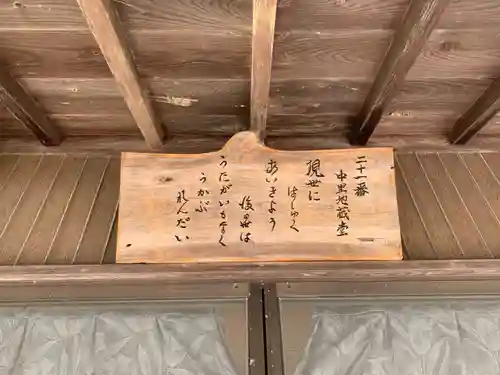 二十一番
中黒地蔵堂
現世に
はしゅく
あいきよう
後の世は
うたがいもなく
うかぶ
れんだい